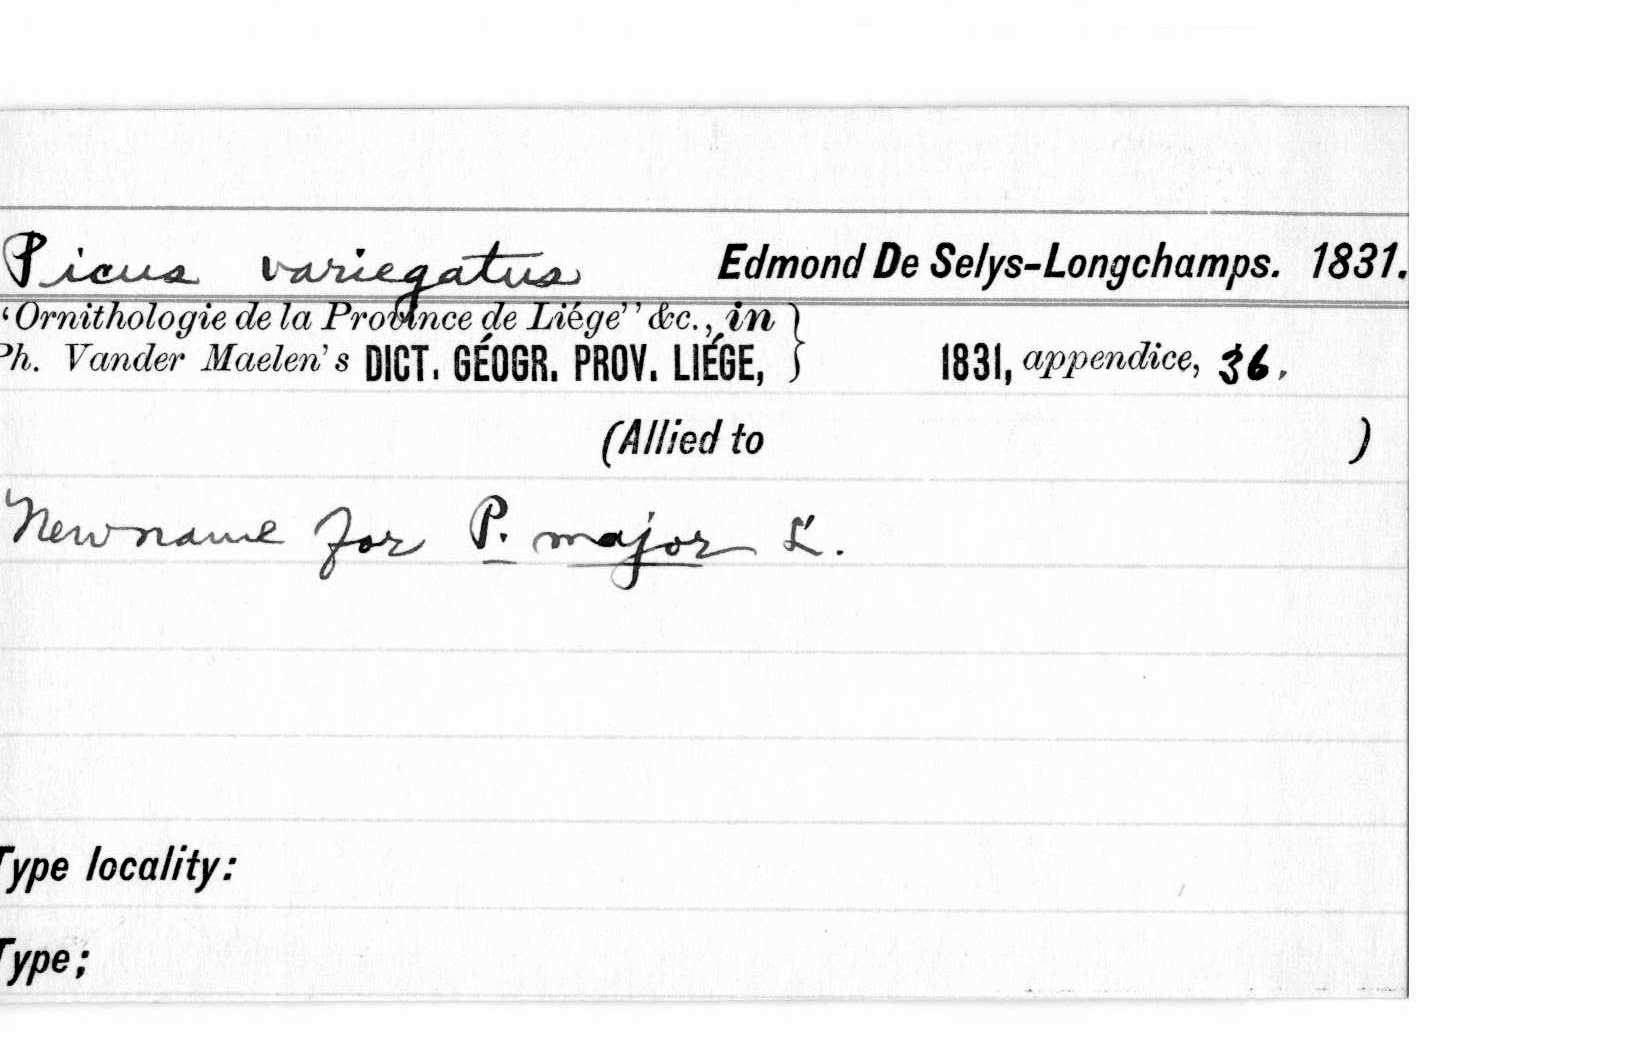 Picus variegatus Edmond De Selys-Longchamps. 1831.
‘Ornithologie de la Province de Liége’’ &c., in }
Ph. Vander Maelen's DICT. GÉOGR. PROV. LIÉGE, 1831, appendice, 36.
(Allied to )
New name for P. major L.
Type locality:
Type;